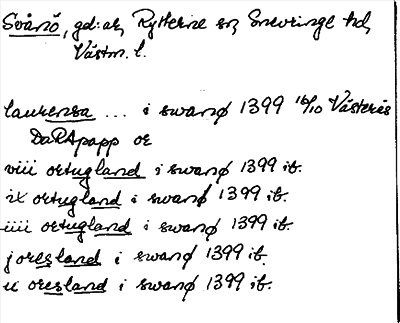 Svånö, gd: ar, Rytterne sn, Snevringe hd,
Västm. l.
laurensa ... i swanø 1399 16/10 Västerås
DaRApapp or
viii ortugland i swanø 1399 ib.
ix ortugland i swanø 1399 ib.
iiii ortugland i swanø 1399 ib.
j oresland i swanø 1399 ib.
ii oresland i swanø 1399 ib.